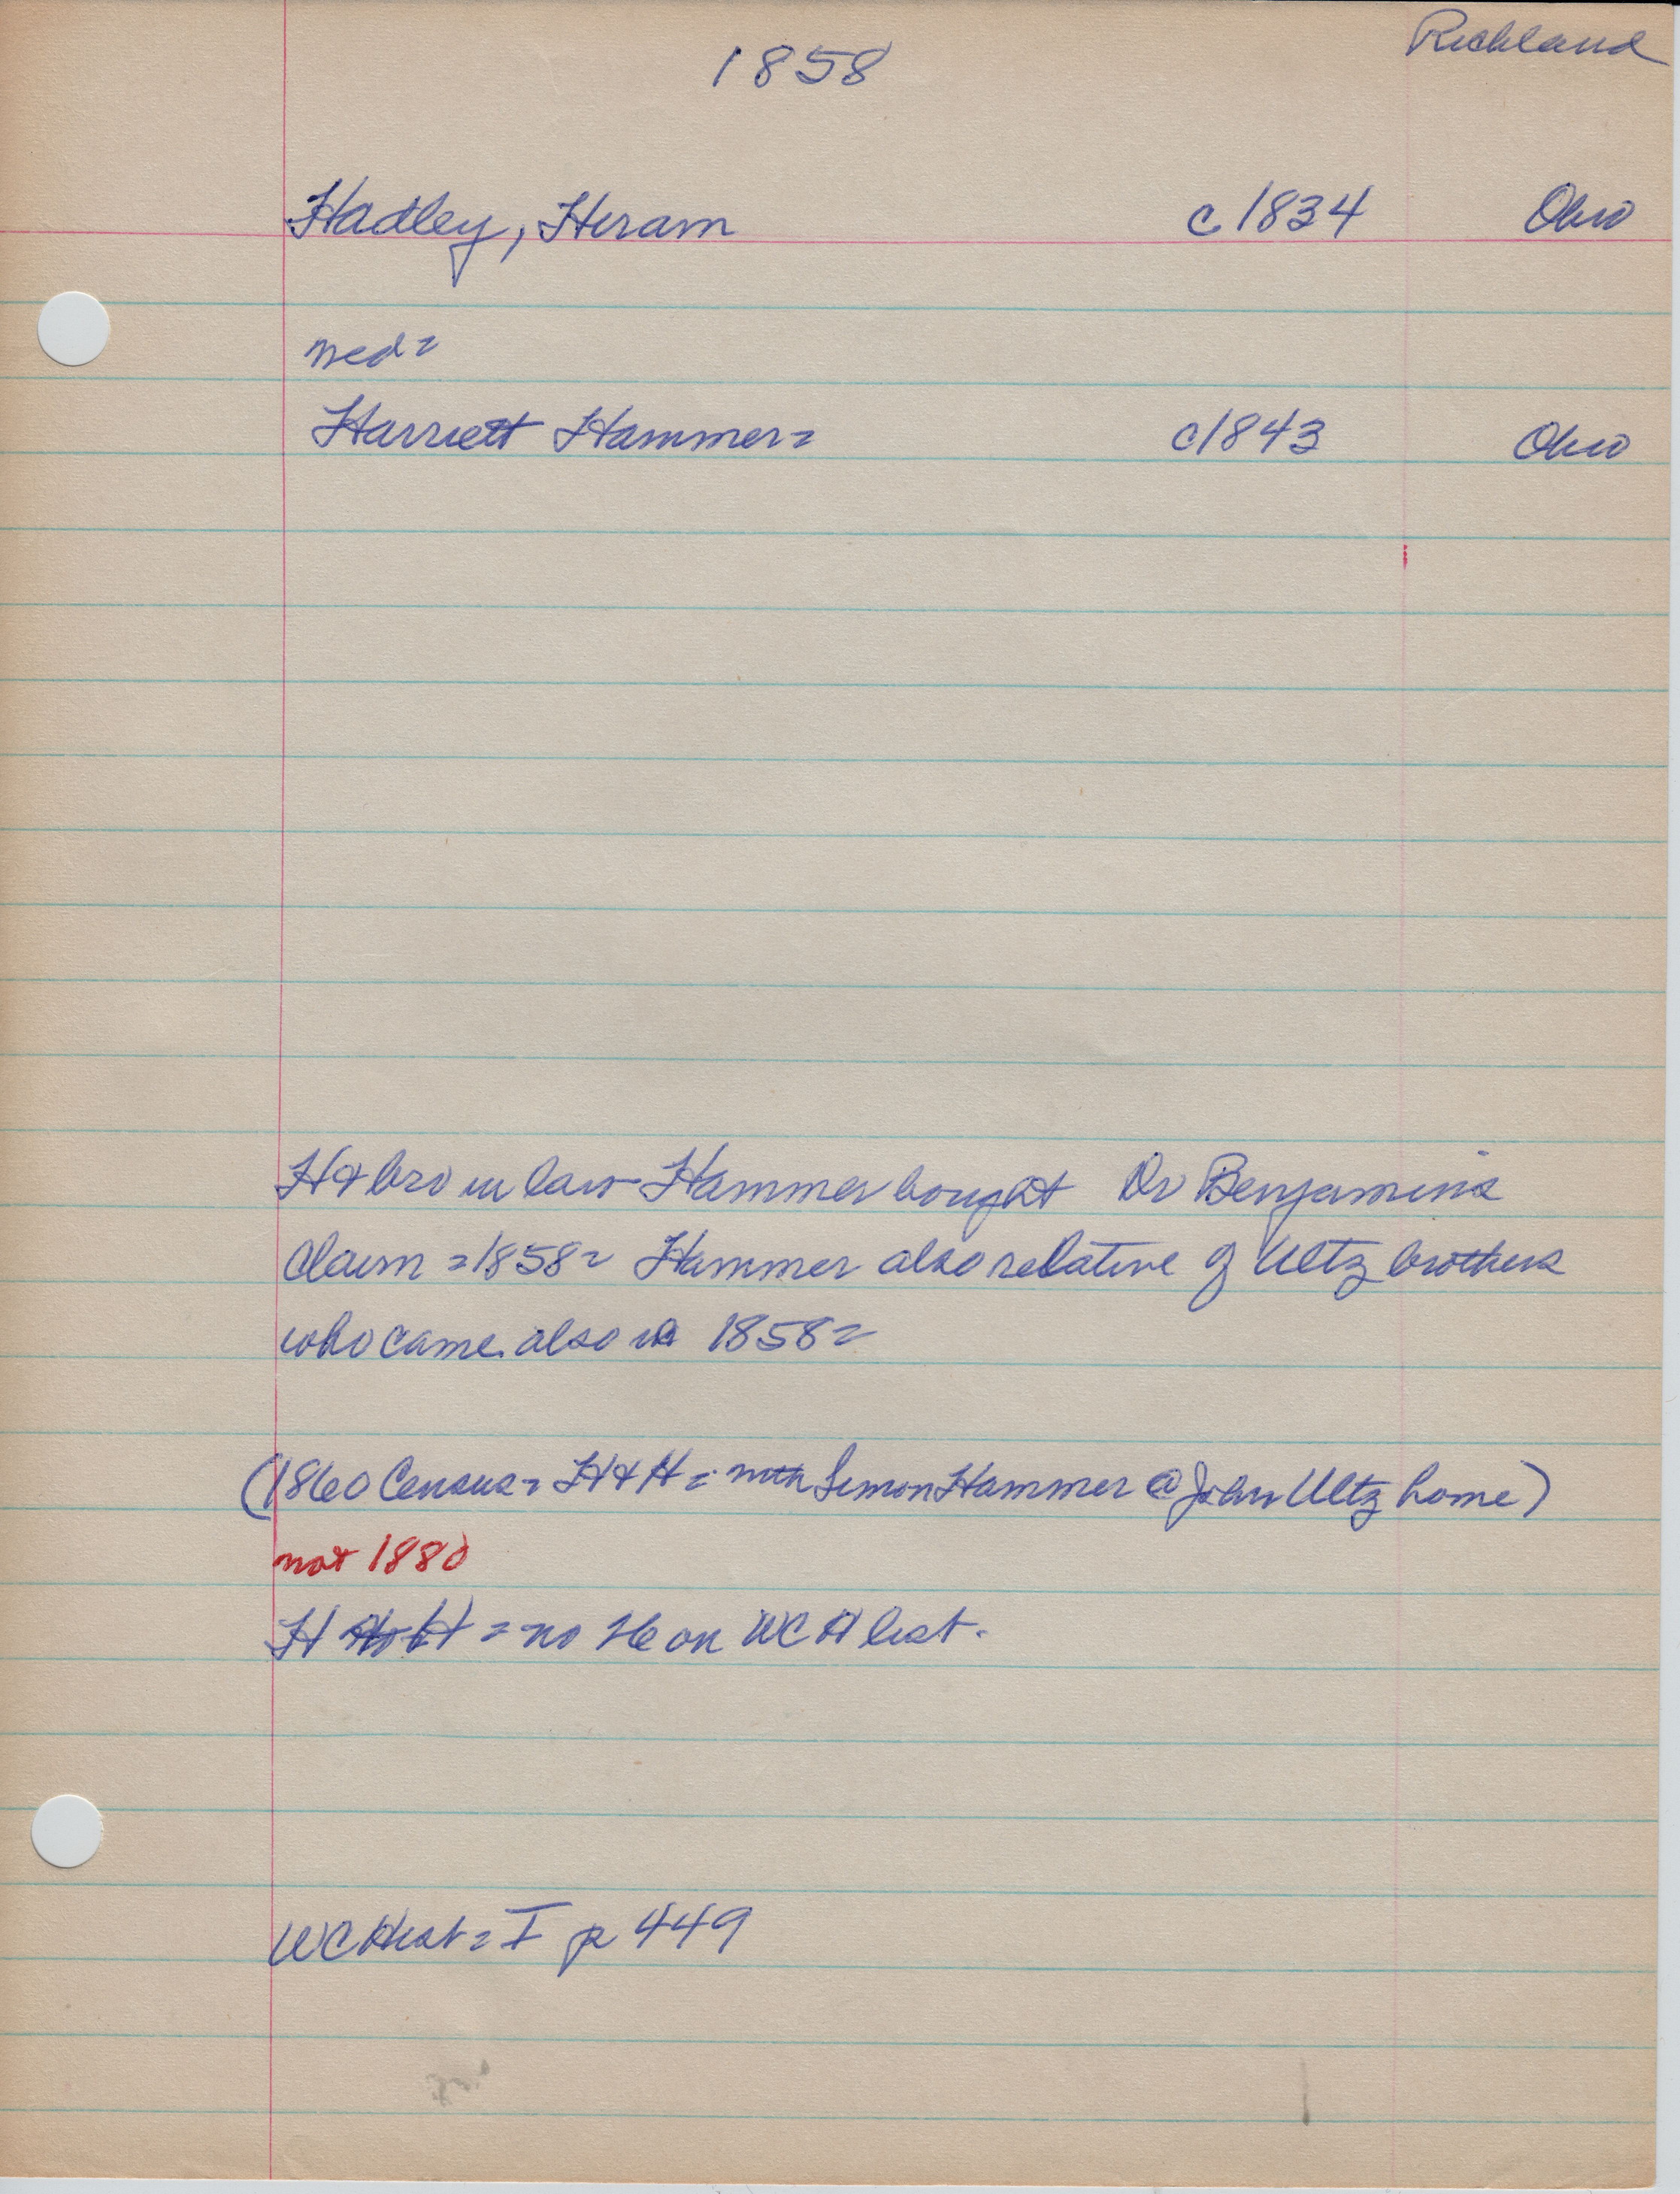 Richland
1858
Hadley, Hiram c 1834 Ohio
med=
Harriett Hammer= c1843 Ohio
H & bro in law Hammer bought Dr Benjamins
Claim =1858= Hammer also relative of Ultz brothers
who came also in 1858=
(1860 Census= H & H = with Simon Hammer @ John Ultz home)
not 1880
H = no H on WC H list.
WC Hist = I p 449